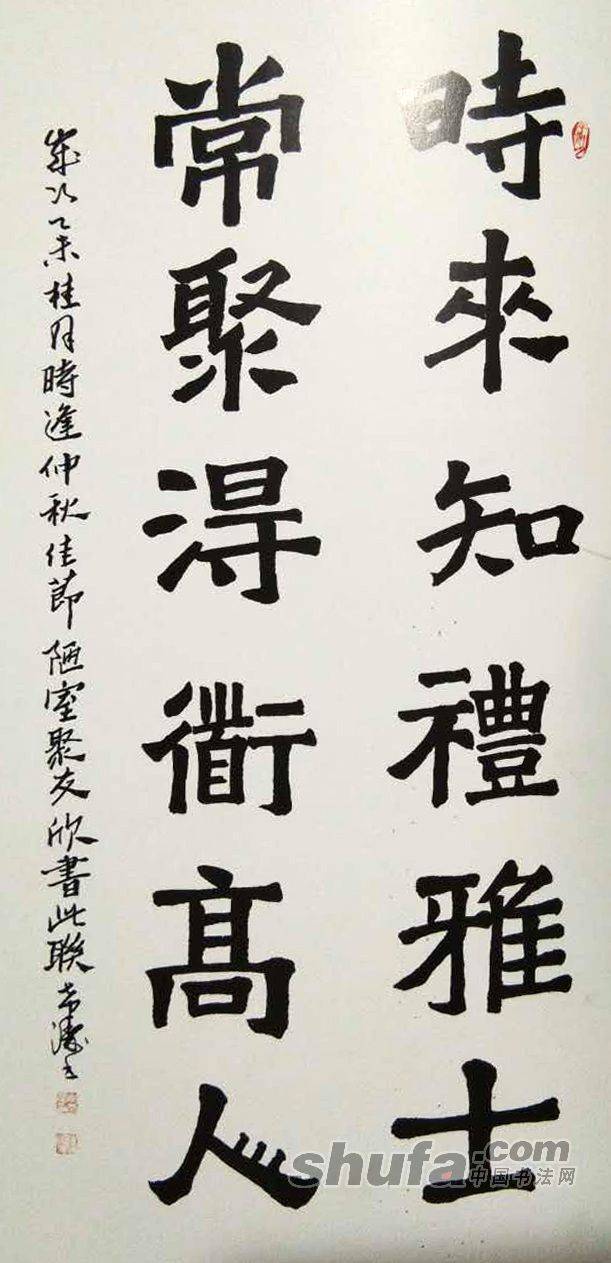 時來知禮雅士
常聚淂衜髙人
歲次乙未桂月時逢仲秋佳節陋室聚友欣書此聯
shufa.com
中国书法网